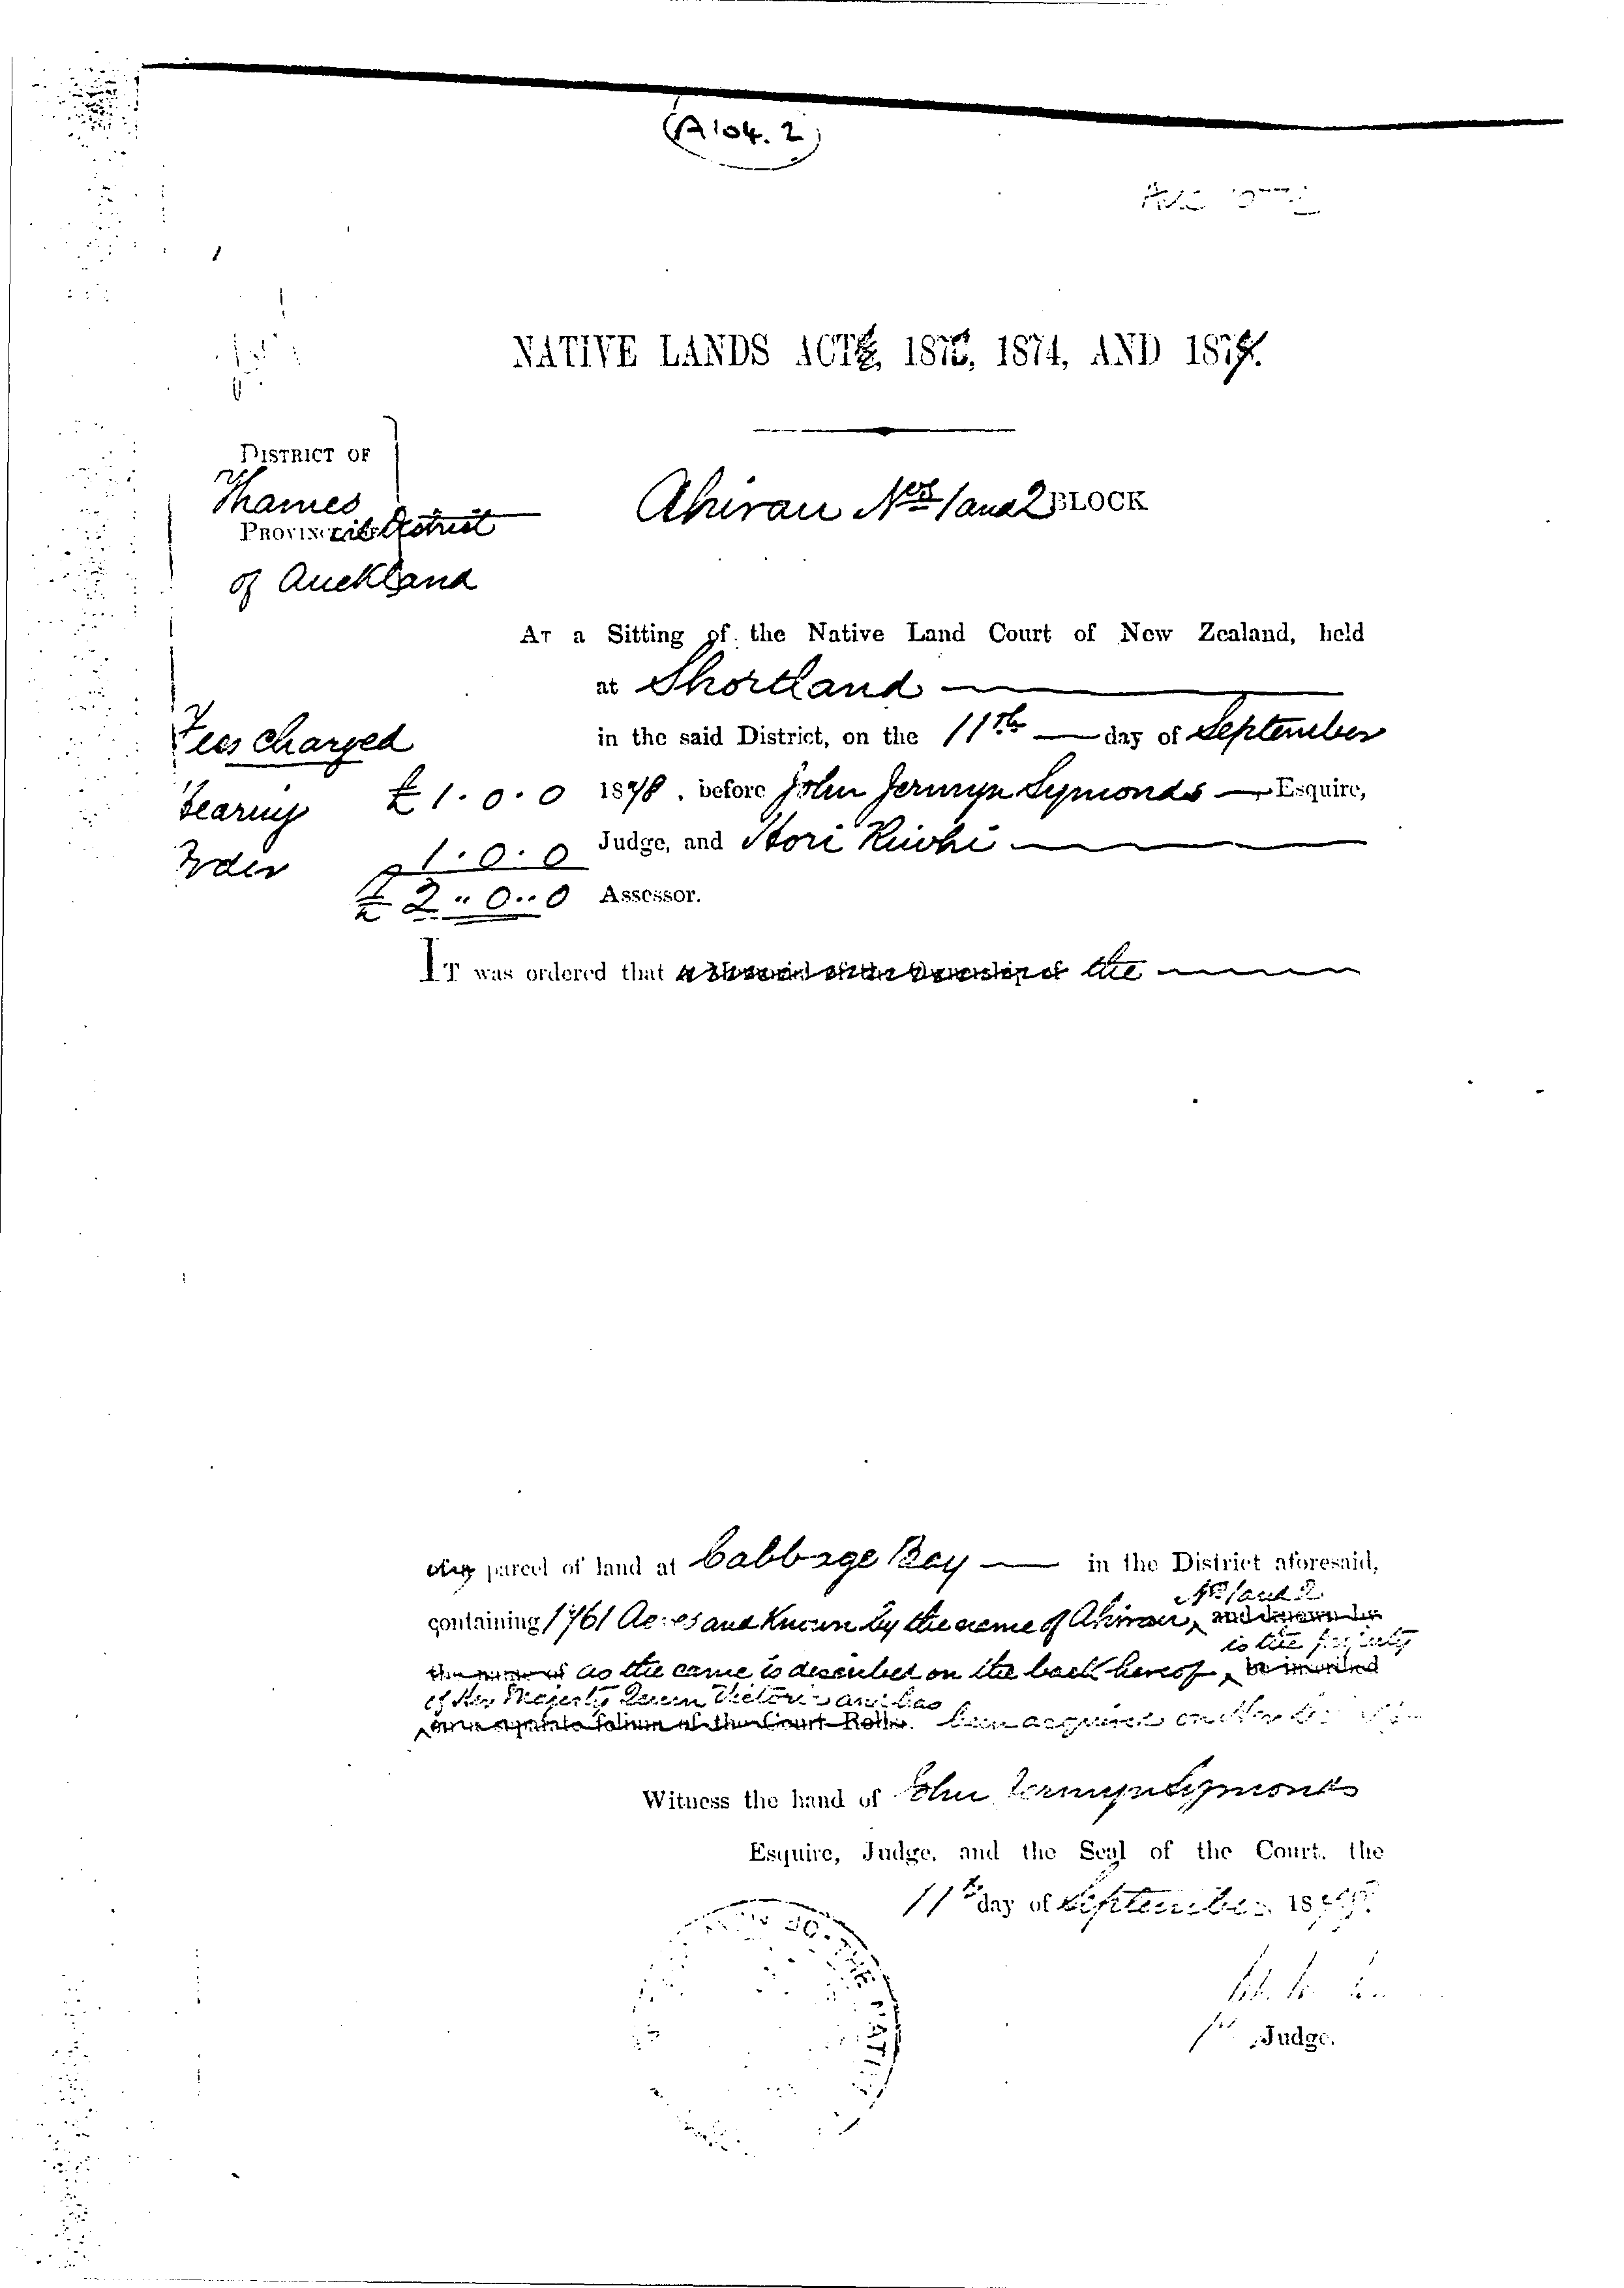 (A104.2)
NATIVE LANDS ACTS, 1873, 1874, AND 1878.
DISTRICT OF
Thames
PROVINCIAL District
of Auckland
Ahirau Nos 1 and 2 BLOCK
AT a Sitting of the Native Land Court of New Zealand, held
at Shortland
in the said District, on the 11th day of September
1878, before John Jermyn Symonds Esquire,
Judge, and Hori Riwhi
Assessor.
Fees Charged
Hearing £1.0.0
Order 1.0.0
£2..0..0
IT was ordered that a Memorial of the Ownership of the
parcel of land at Cabbage Bay in the District aforesaid,
Nos 1 and 2
containing 1761 Acres and known by the name of Ahirau, and known by
is the property
the name of as the same is described on the back hereof, be inscribed
of Her Majesty Queen Victoria and has
on a separate folium of the Court Rolls. been acquired on Her
Witness the hand of John Jermyn Symonds
Esquire, Judge, and the Seal of the Court, the
11th day of September 18
Judge.